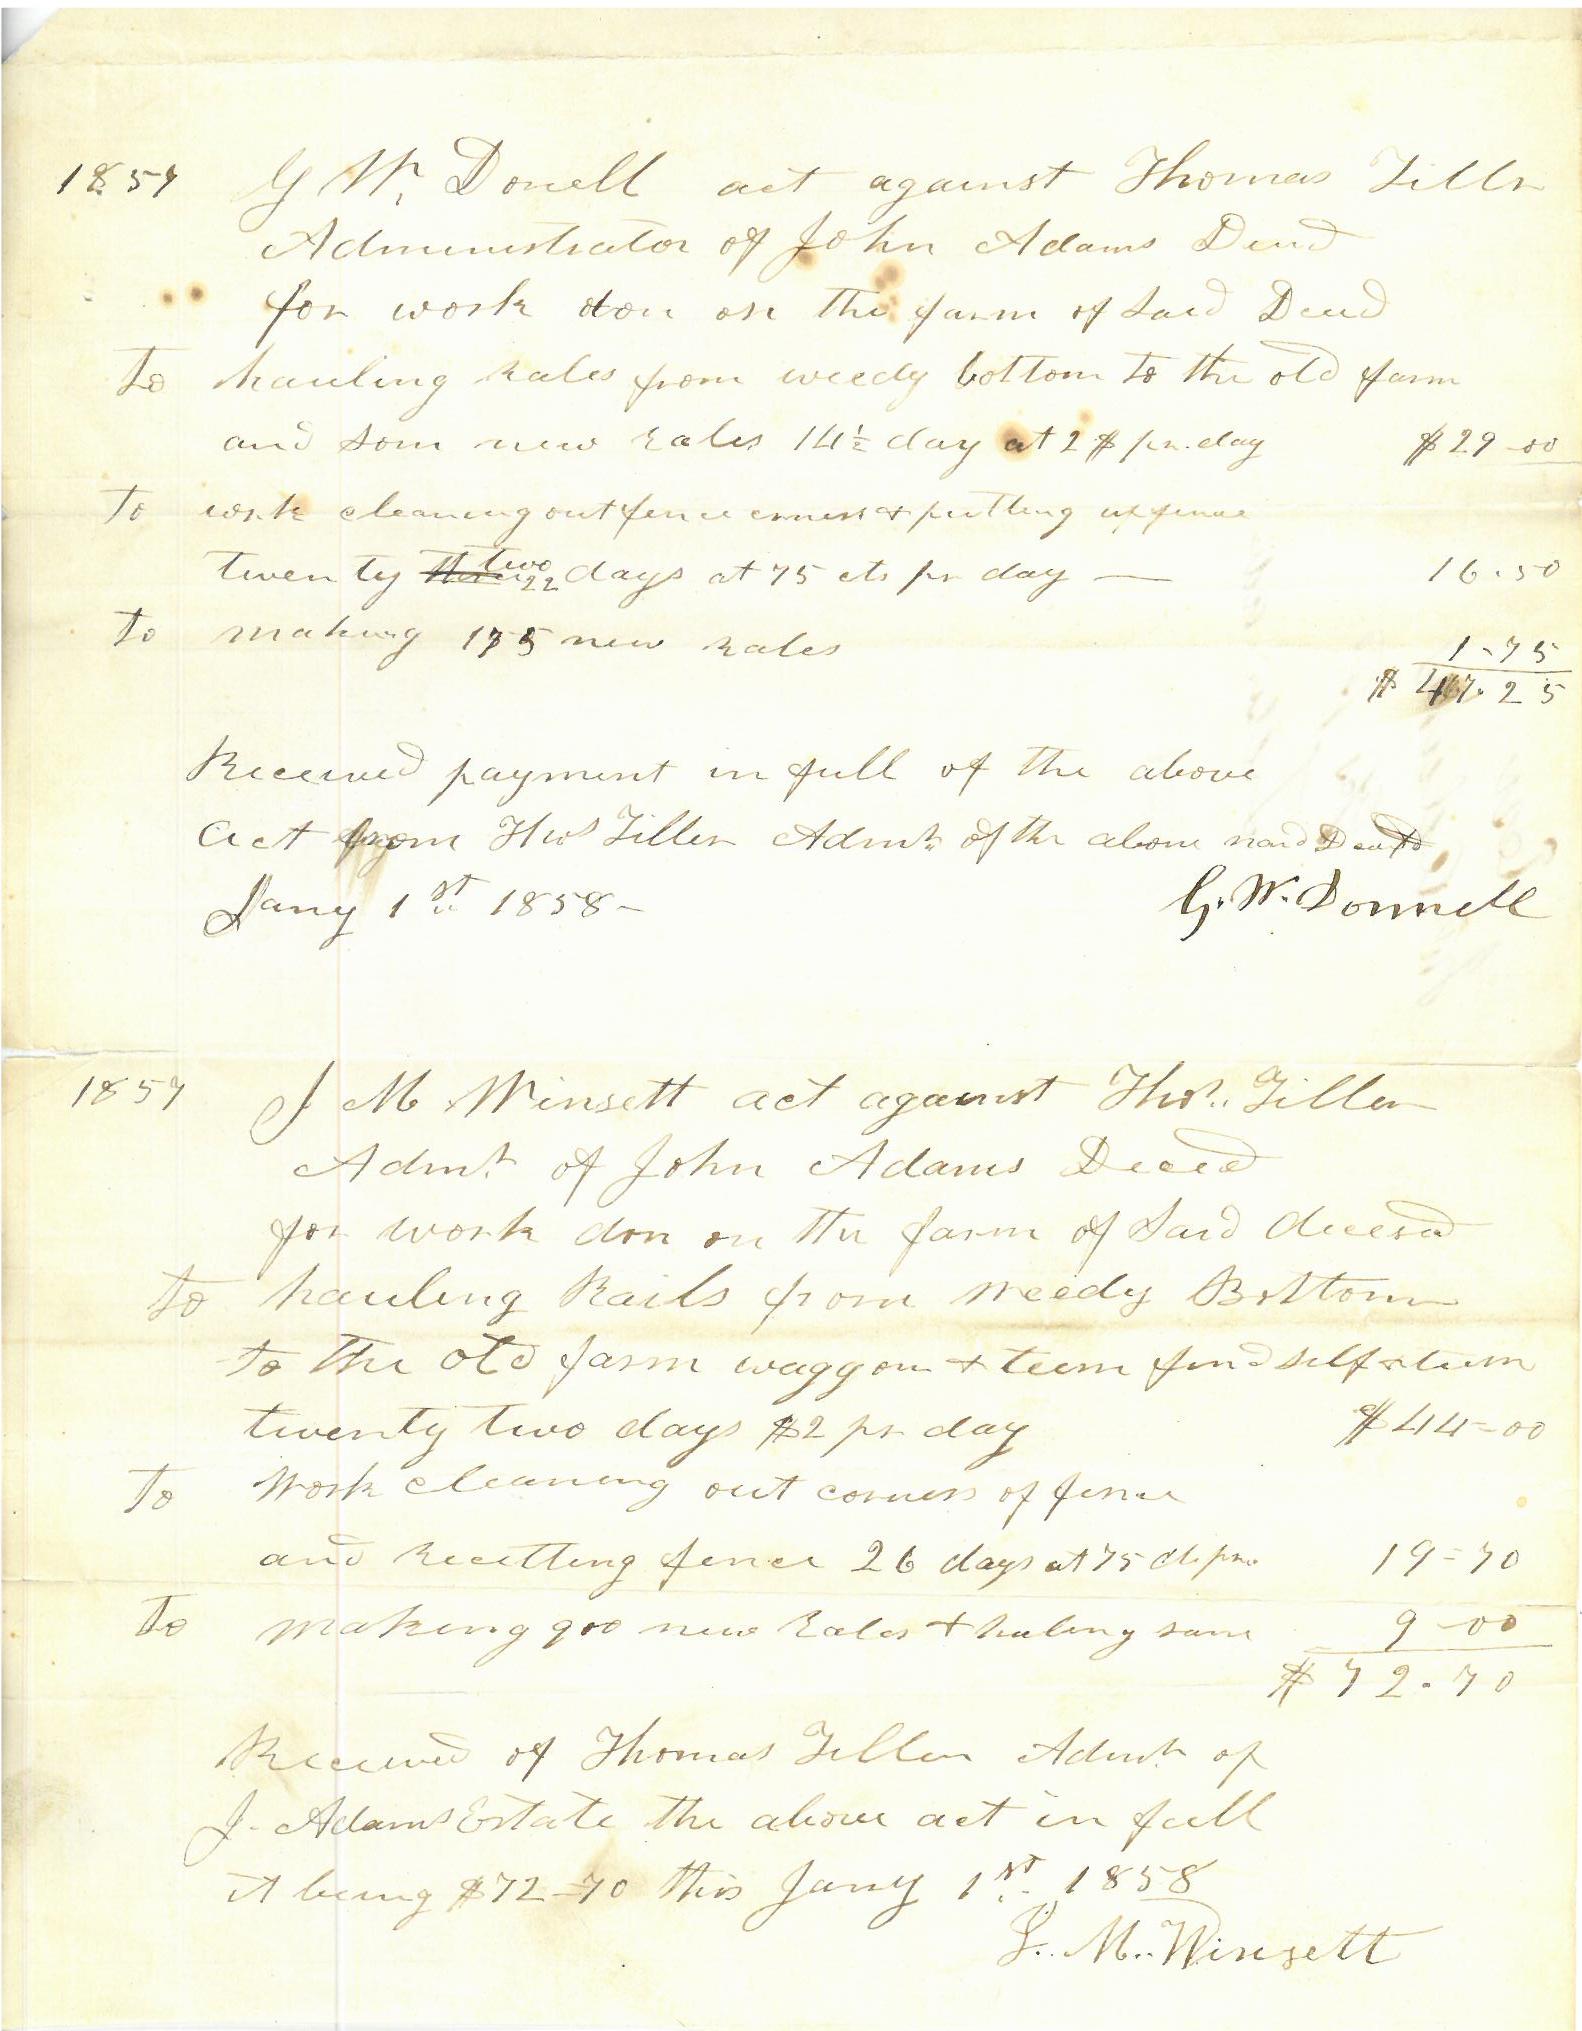 1857 G W. Donell act against Thomas Tiller
Administrator of John Adams Decd
for work don on the farm of Said Decd
To hauling Rales from weedy bottom to the old farm
and Som new Rales 14 1/2 day at 2$ pr. day $29-00
To work cleaning out fence corners & putting up fence
twenty two 22 days at 75 cts pr day — 16.50
To making 175 new Rales 1-75
$ 47.25
Received payment in full of the above
act from Thos Tiller Admr. of the above
Jany 1st 1858- G. W. Donnell
1857 J M Winsett act against Thos. Tiller
Admr. of John Adams Deced
for work don on the farm of Said
To hauling Rails from Weedy Bottom
to the old farm waggon & teem find self & teem
twenty two days $2 pr day $44-00
To Work cleaning out corners of fence
and Resetting fence 26 days at 75 ct pr. 19-70
To making 900 new Rales & hauling same 9-00
$72.70
Received of Thomas Tiller Admr. of
J. Adams Estate the above act in full
it being $72-70 this Jany 1st. 1858
J. M. Winsett